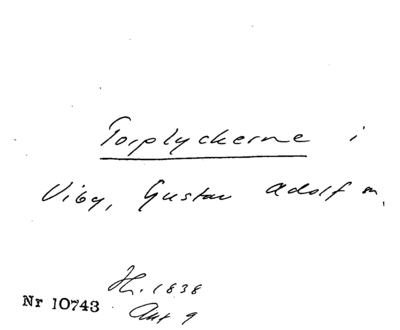 Torplyckerne i
Viby, Gustav Adolf m.
H. 1838
Nr 10743 Akt 9